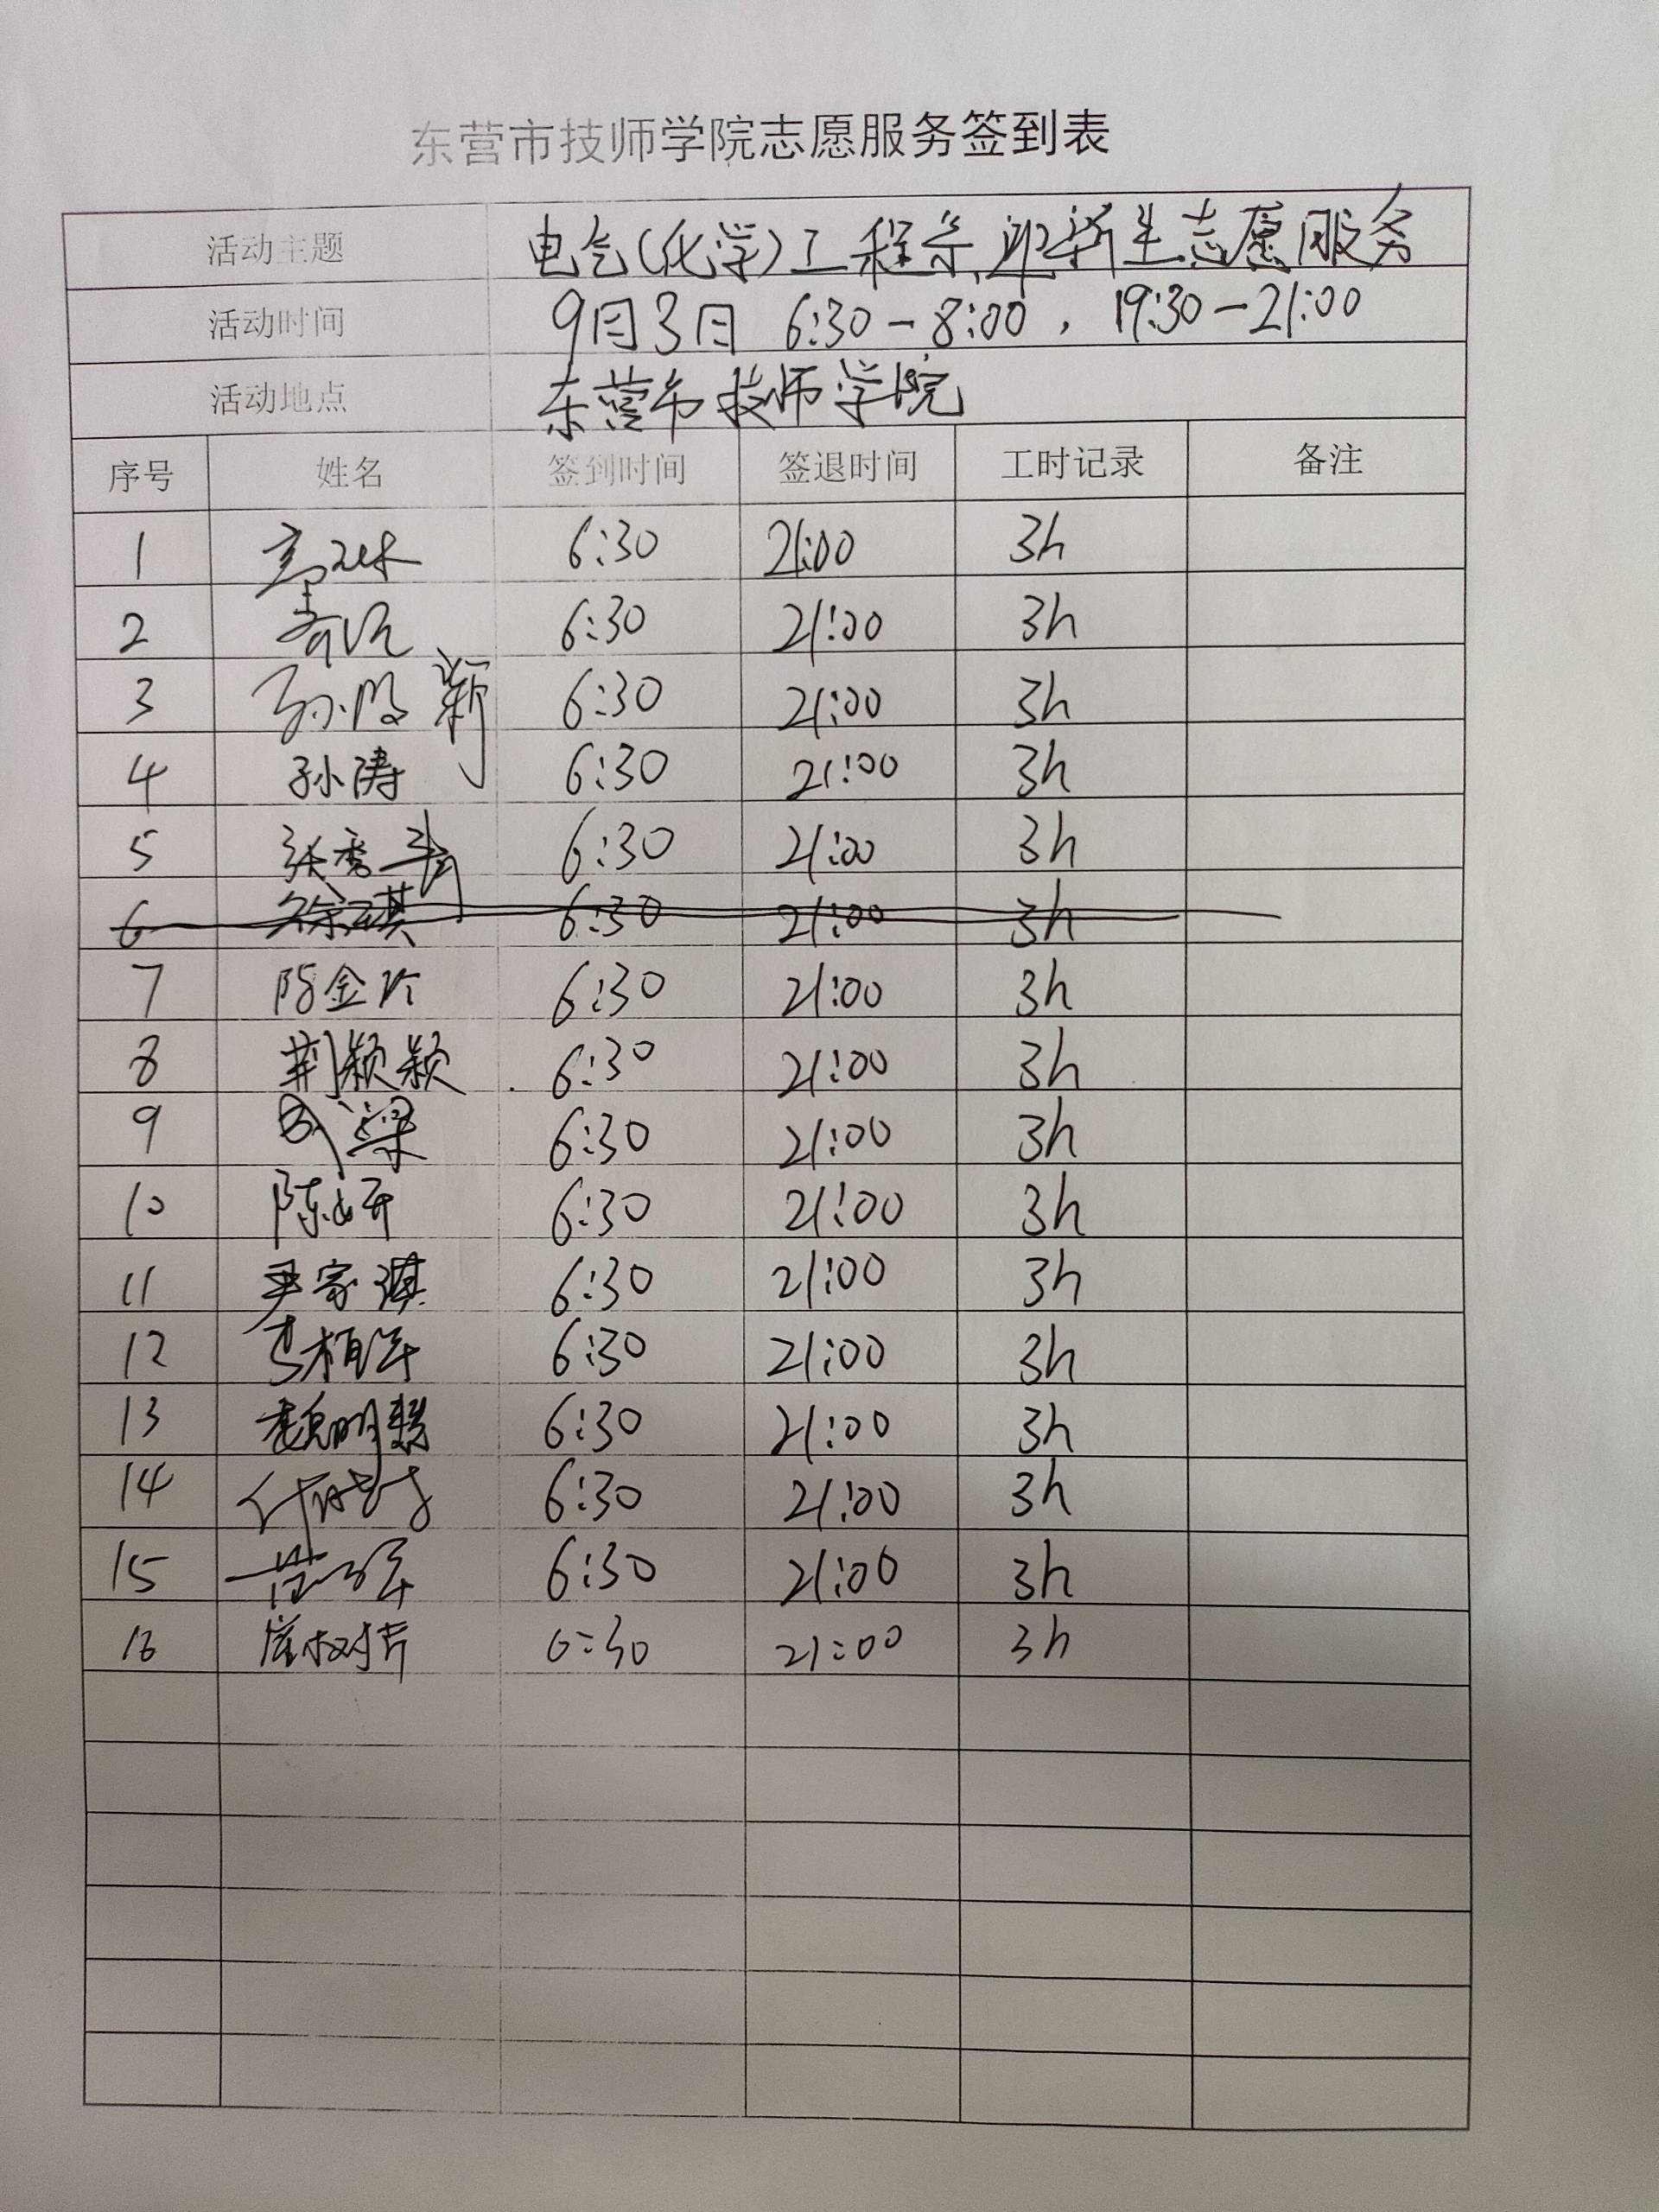 东营市技师学院志愿服务签到表
活动主题 电气(化学)工程系迎新生志愿服务
活动时间 9月3日 6:30-8:00, 19:30-21:00
活动地点 东营市技师学院
序号 姓名 签到时间 签退时间 工时记录 备注
1 6:30 21:00 3h
2 6:30 21:00 3h
3 6:30 21:00 3h
4 孙涛 6:30 21:00 3h
5 张秀 6:30 21:00 3h
6 徐琪 6:30 21:00 3h
7 陈金玲 6:30 21:00 3h
8 荆颖颖 6:30 21:00 3h
9 6:30 21:00 3h
10 陈妍 6:30 21:00 3h
11 尹家琪 6:30 21:00 3h
12 6:30 21:00 3h
13 魏明 6:30 21:00 3h
14 6:30 21:00 3h
15 6:30 21:00 3h
16 崔树 6:30 21:00 3h